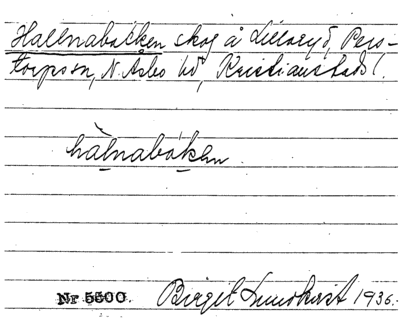 Hallnabacken skog å Lilleryd, Pers-
torps sn, N. Åsbo hd, Kristianstads l.
hàlnabákḁn
Nr 5500. Birgit Lundkvist 1936.